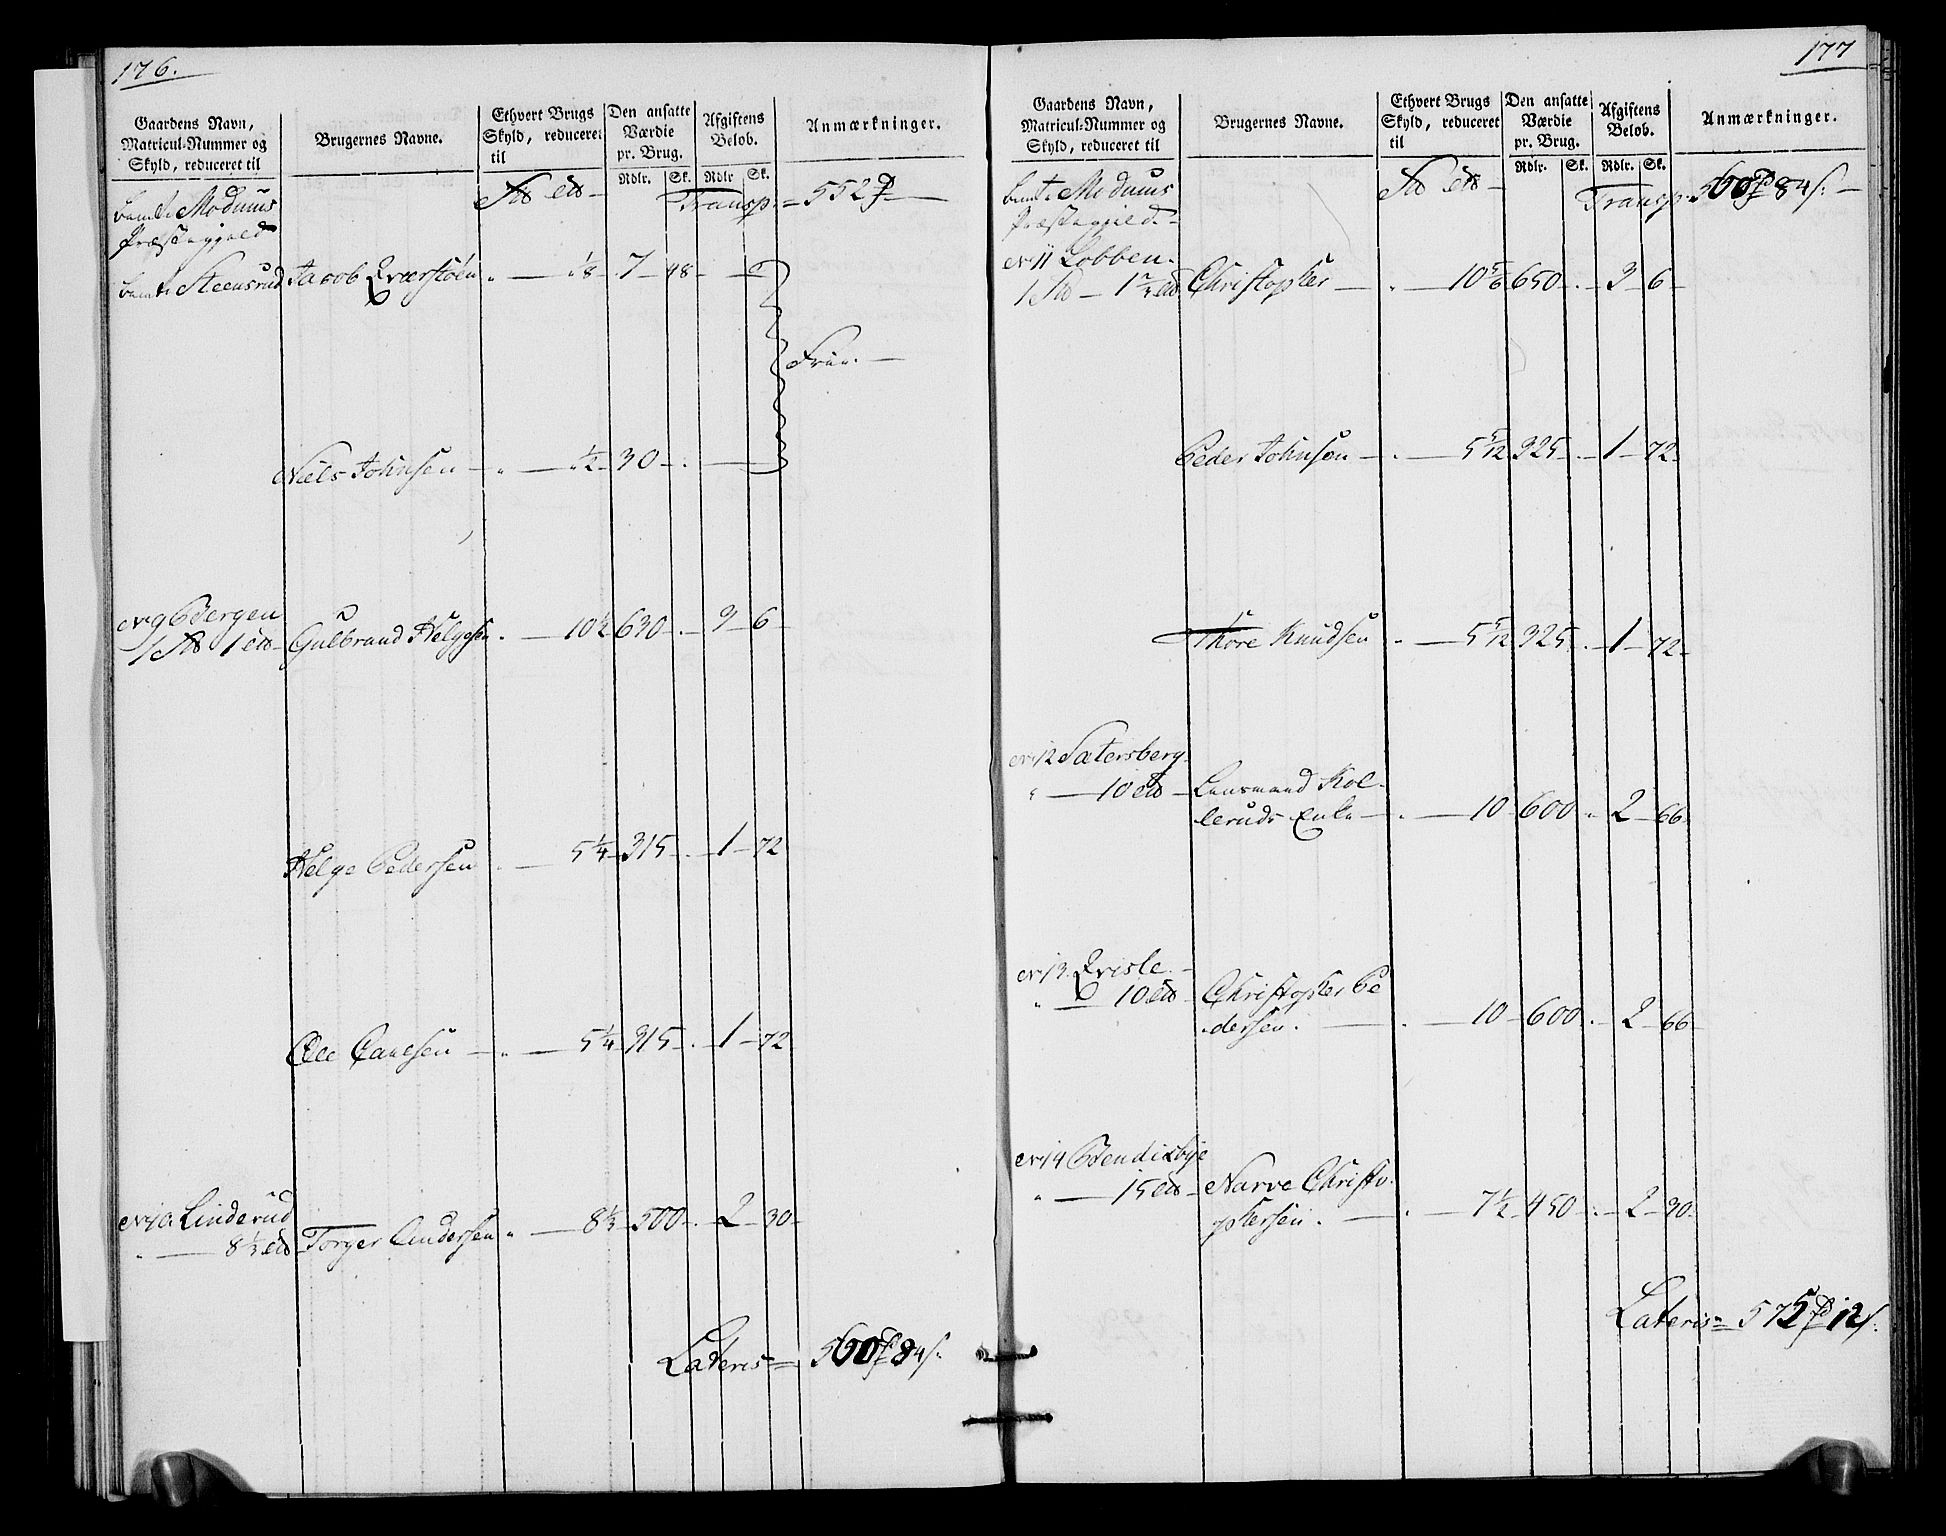 176.
Gaardens Navn,
Matricul-Nummer og
Skyld, reduceret til
Brugernes Navne.
Ethvert Brugs
Skyld, reduceret
til
Den ansatte
Værdie
pr. Brug.
Rdlr. Sk.
Afgiftens
Beløb.
Rdlr Sk.
Anmærkninger.
Modums
Præstegield
Transp. = 552
Steensrud Jacob Qværstøen " — 1/8 7 — 48
Friе. —
Niels Johnsen — " — 1/2 — 30 —
9 Bergen
1 — 1 — Gulbrand Helgesen — 10 1/2 630 — 3 — 6
Helge Pedersen " — 5 1/4 — 315 — 1 — 72
Ole Paulsen — " — 5 1/4 — 315 — 1 — 72
10 Linderud
" — 8 1/3 Torger Andersen " — 8 1/3 — 500 — 2 — 30
Lateris = 560 84
177
Gaardens Navn,
Matricul-Nummer og
Skyld, reduceret til
Brugernes Navne.
Ethvert Brugs
Skyld, reduceret
til
Den ansatte
Værdie
pr. Brug.
Rdlr. Sk.
Afgiftens
Beløb.
Rdlr. Sk.
Anmærkninger.
Modums
Præstegield
Transp. 560 84
11 Lobben
1 — 1 Christopher — 10 5/6 650 — 3 — 6
Peder Johnsen — 5 5/12 325 — 1 — 72
Thore Knudsen — 5 5/12 325 — 1 — 72
12 Sætersberg
" — 10 — Lensmand Kol-
leruds Enke — 10 — 600 — 2 — 66
13. Qvisle
" — 10 Christopher Pe
dersen. — 10 — 600 — 2 — 66
14 Bendixbye
" — 15 — Narve Christo-
phersen. — 7 1/2 — 450 — 2 — 30
Lateris = 575 12